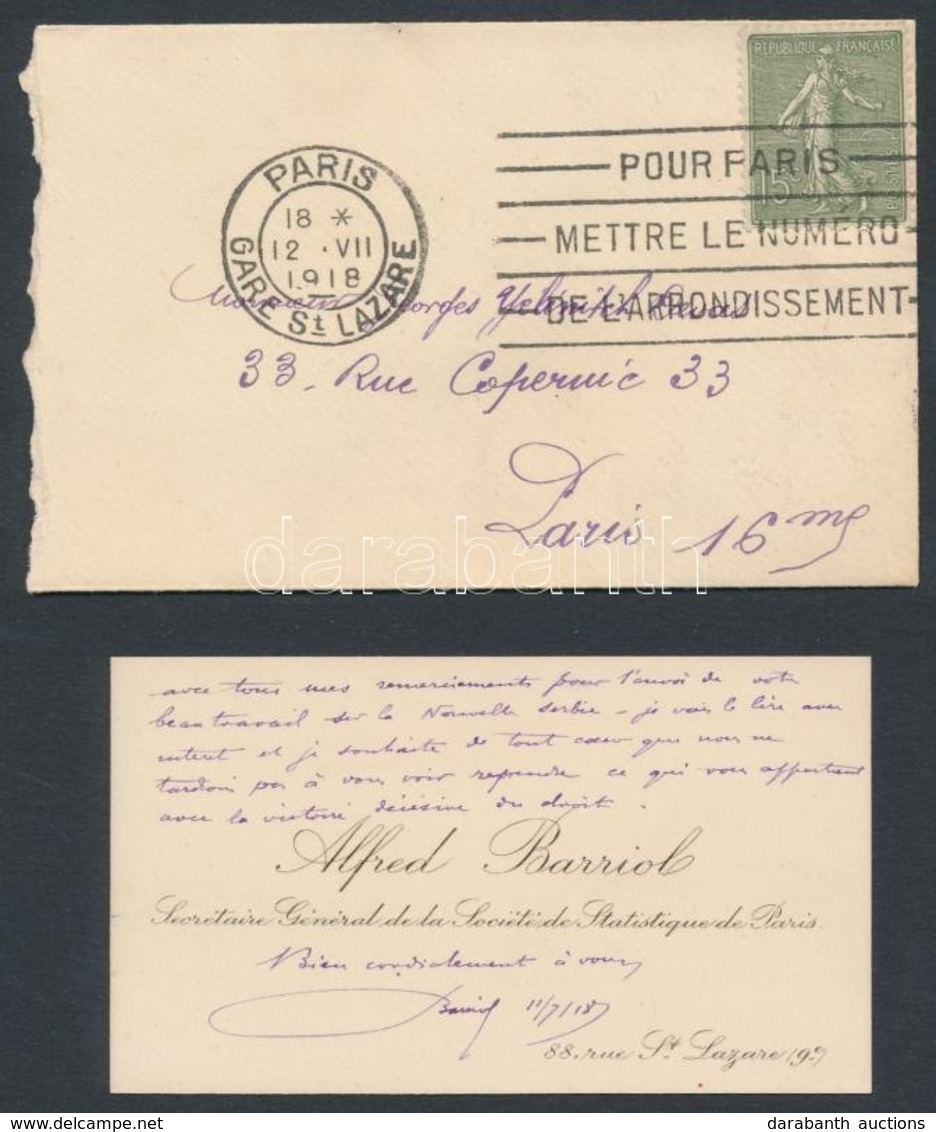 REPUBLIQUE FRANÇAISE
15
POSTES
PARIS
18 *
12 · VII
1918
GARE St LAZARE
POUR PARIS
METTRE LE NUMÉRO
DE L'ARRONDISSEMENT
Monsieur Georges
33. Rue Copernic 33
Paris 16me
darabanth
avec tous mes remerciements pour l'envoi de votre
beau travail sur la Nouvelle Serbie - je vais le lire avec
intérêt et je souhaite de tout cœur que nous ne
tardions pas à vous voir reprendre ce qui vous appartient
avec la victoire décisive du droit.
Alfred Barriol
Secrétaire Général de la Société de Statistique de Paris.
Bien cordialement à vous
Barriol 11/7/18
88, rue St Lazare (9e)
darabanth auctions